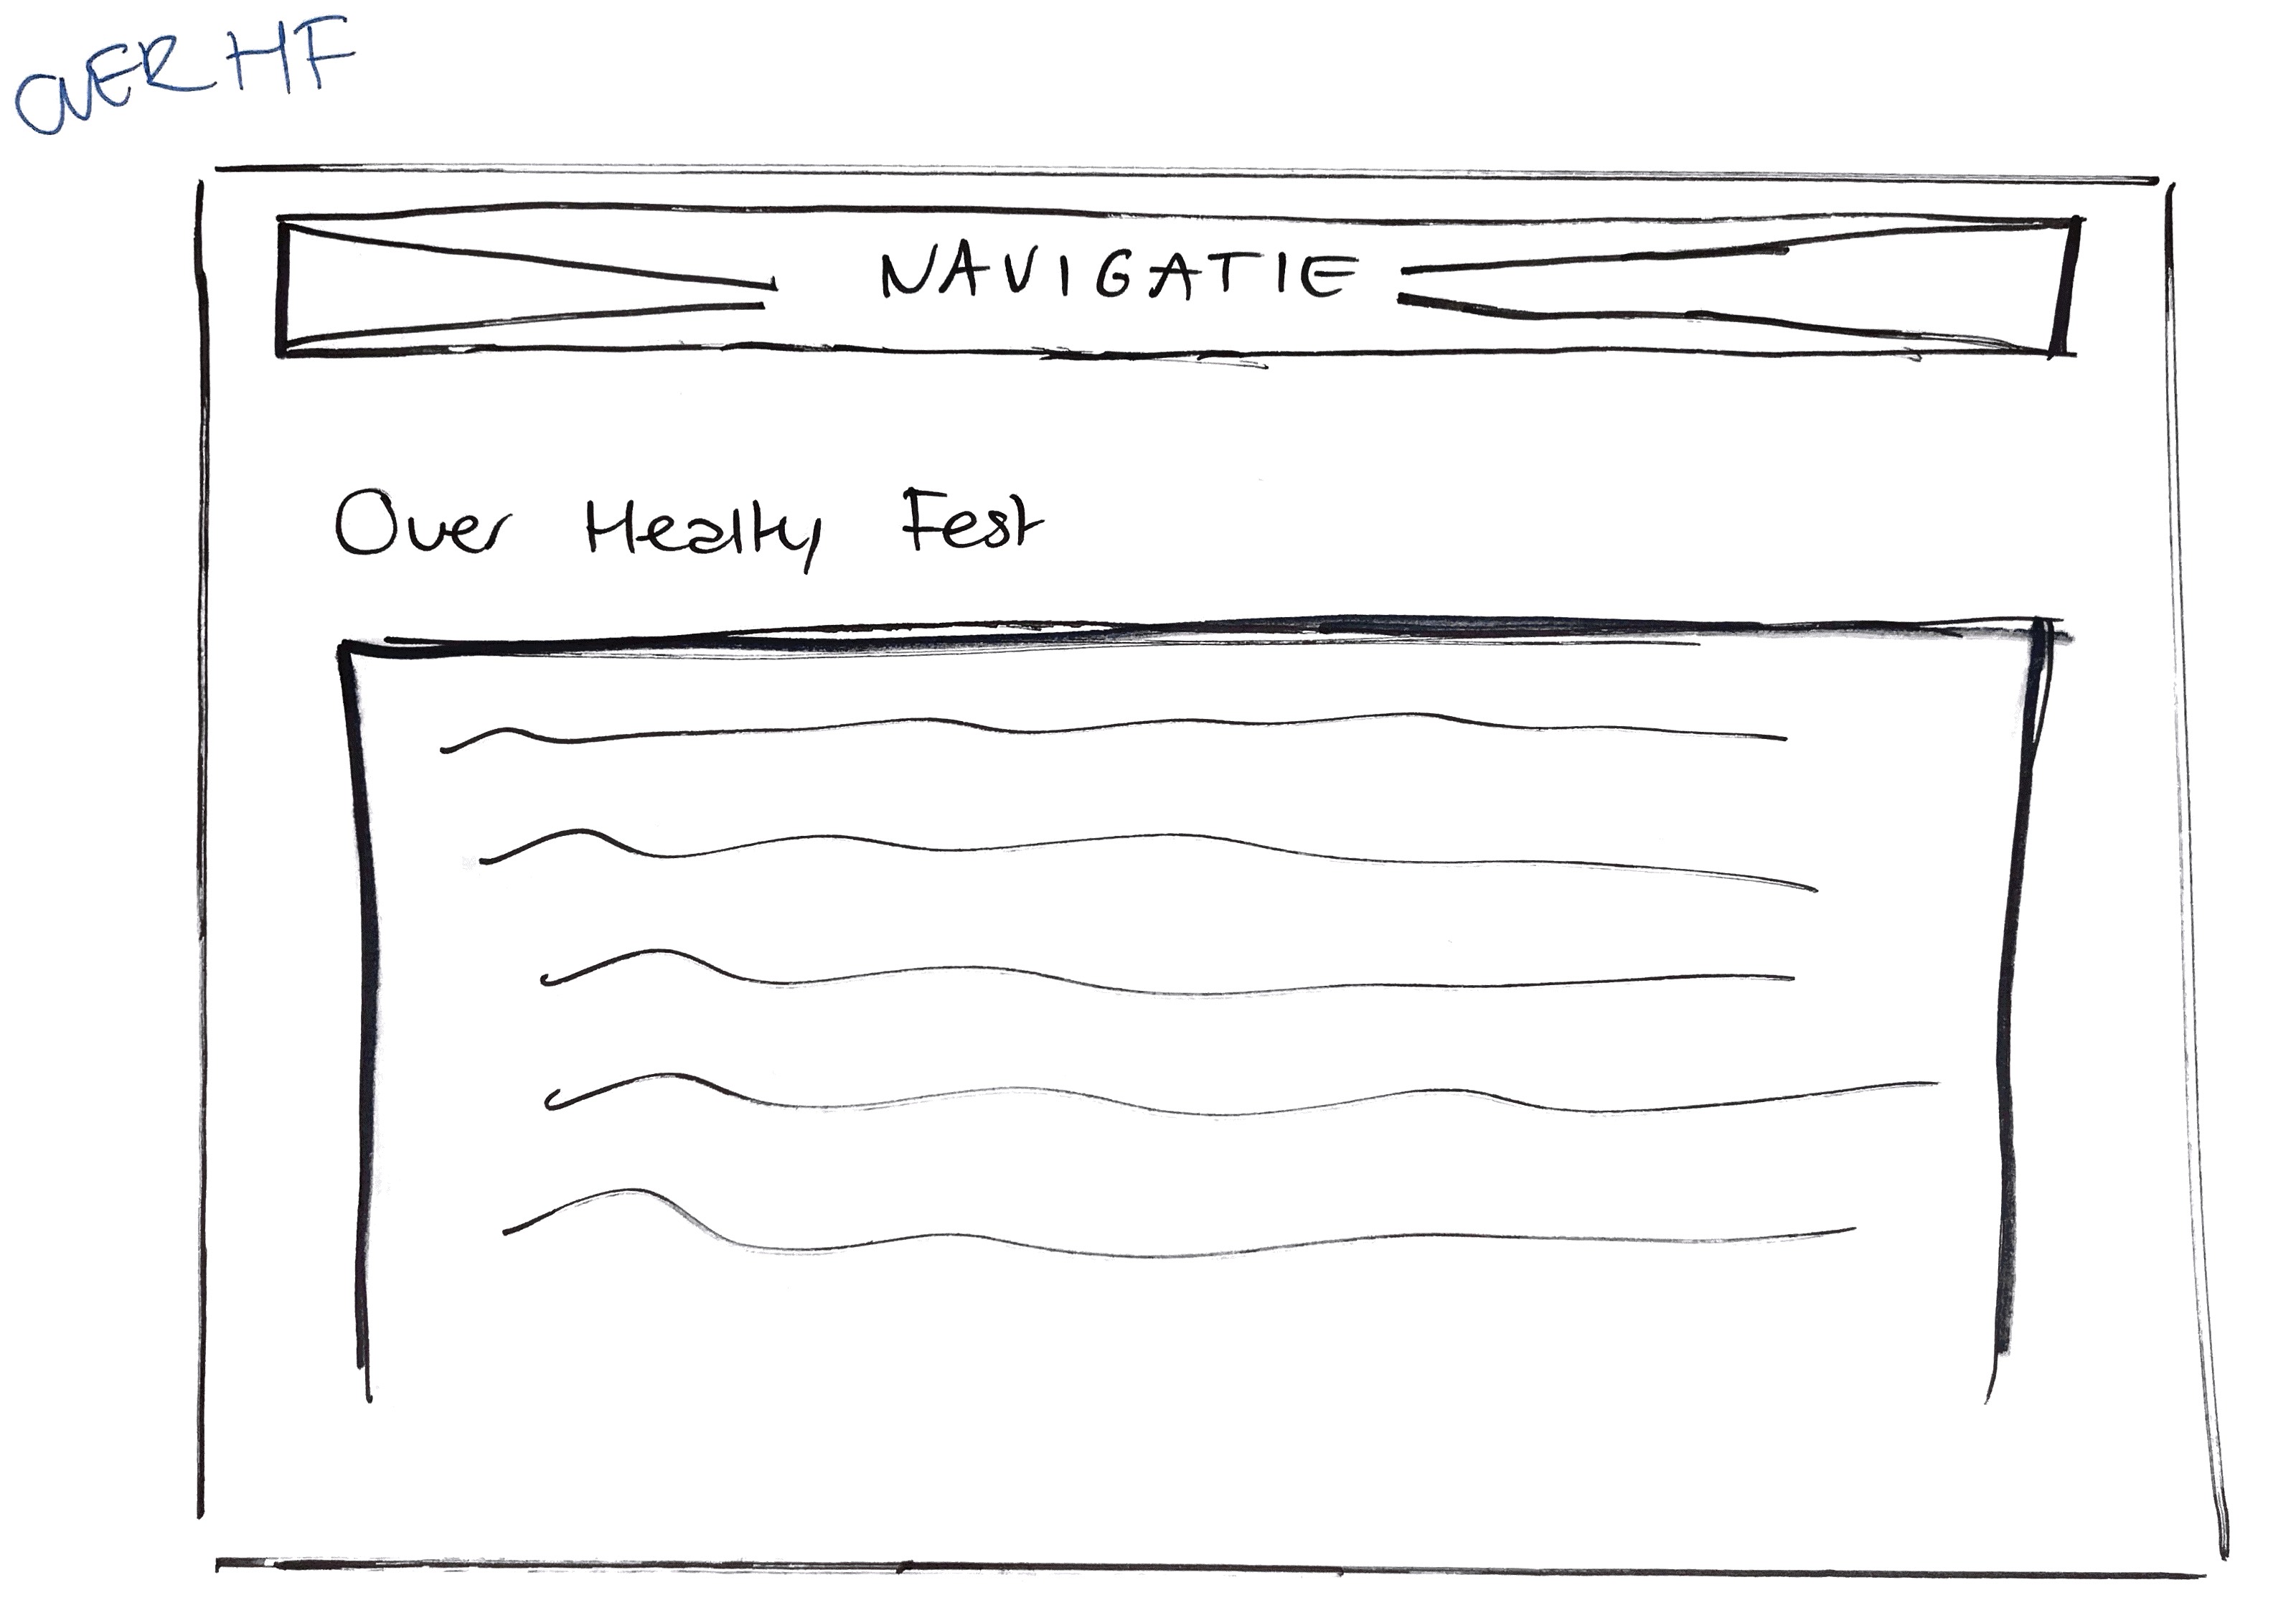 OVER HF
NAVIGATIE
Over Healty Fest